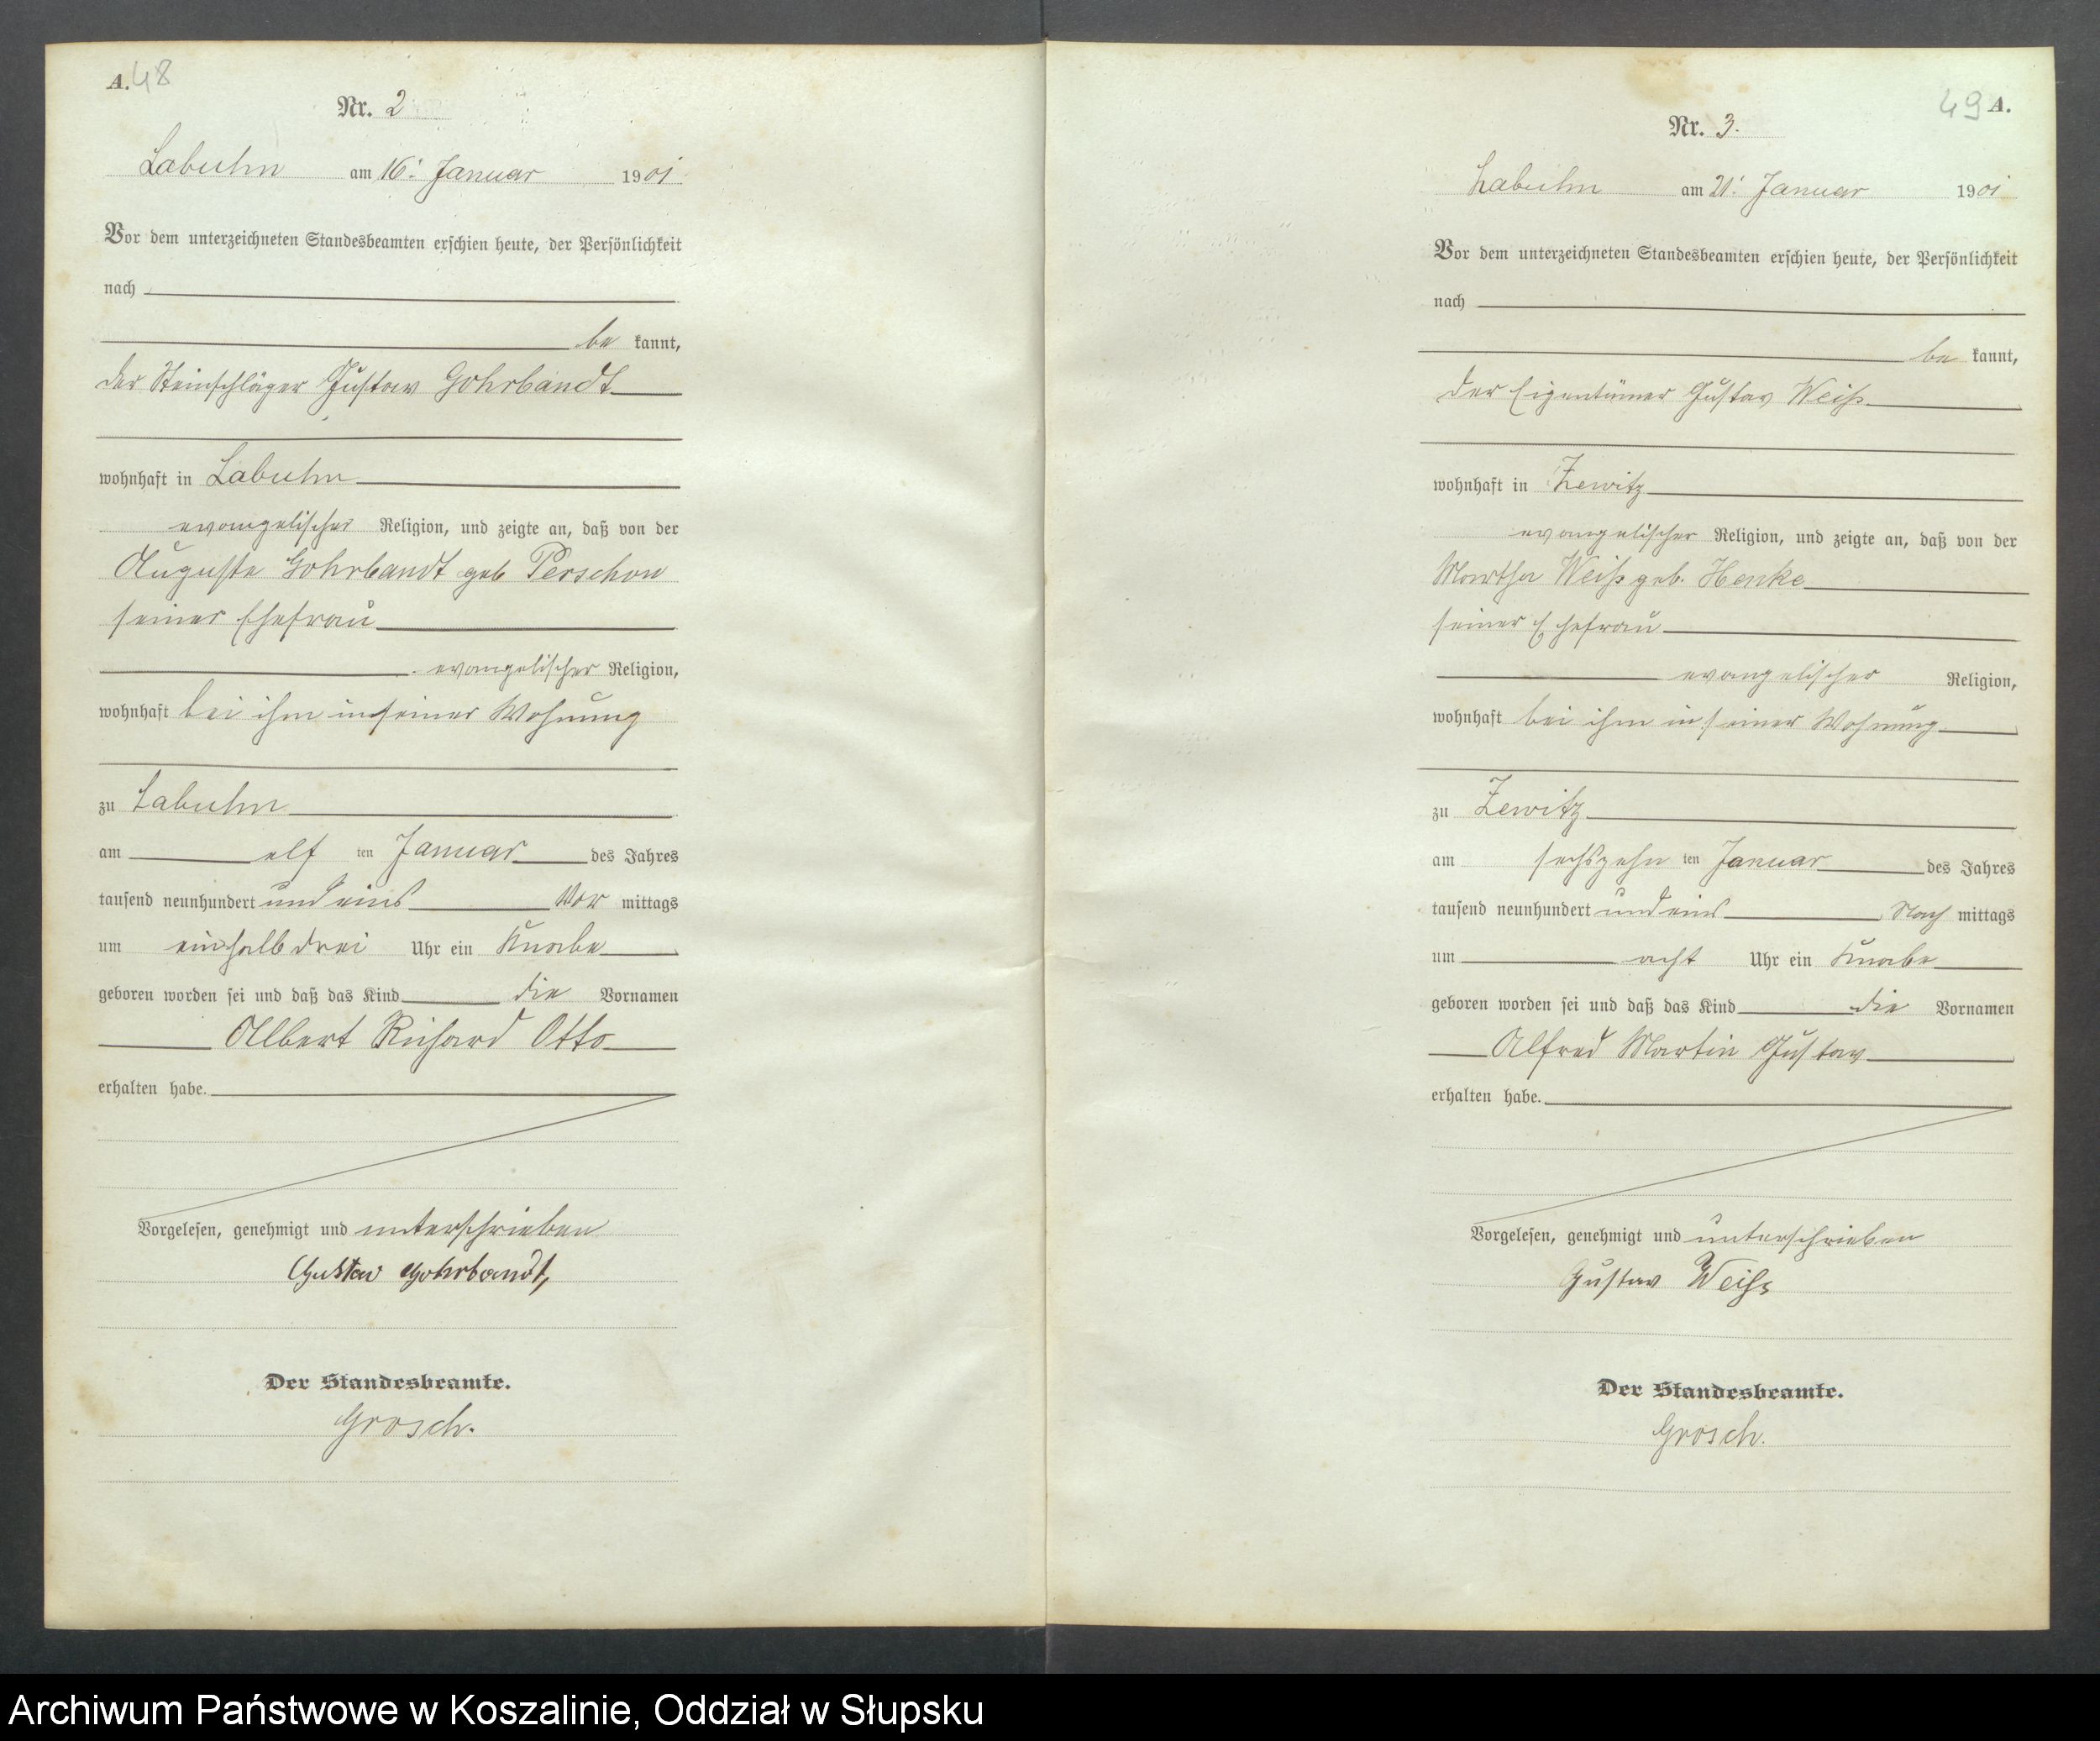 A. 48
Nr. 2
Labuhn am 16. Januar 1901
Vor dem unterzeichneten Standesbeamten erschien heute, der Persönlichkeit
nach
be kannt,
der Steinschläger Gustav Gohrbandt
wohnhaft in Labuhn
evangelischer Religion, und zeigte an, daß von der
Auguste Gohrbandt geb Perschon
seiner Ehefrau
evangelischer Religion,
wohnhaft bei ihm in seiner Wohnung
zu Labuhn
am elf ten Januar des Jahres
tausend neunhundert und eins Vor mittags
um einhalb drei Uhr ein Knabe
geboren worden sei und daß das Kind die Vornamen
Albert Richard Otto
erhalten habe.
Vorgelesen, genehmigt und unterschrieben
Gustav Gohrbandt,
Der Standesbeamte.
Grosch.
49 A.
Nr. 3.
Labuhn am 21. Januar 1901
Vor dem unterzeichneten Standesbeamten erschien heute, der Persönlichkeit
nach
be kannt,
der Eigentümer Gustav Weiß
wohnhaft in Zewitz
evangelischer Religion, und zeigte an, daß von der
Martha Weiß geb. Henke
seiner Ehefrau
evangelischer Religion,
wohnhaft bei ihm in seiner Wohnung
zu Zewitz
am sechszehn ten Januar des Jahres
tausend neunhundert und eins Nach mittags
um acht Uhr ein Knabe
geboren worden sei und daß das Kind die Vornamen
Alfred Martin Gustav
erhalten habe.
Vorgelesen, genehmigt und unterschrieben
Gustav Weiß
Der Standesbeamte.
Grosch.
Archiwum Państwowe w Koszalinie, Oddział w Słupsku